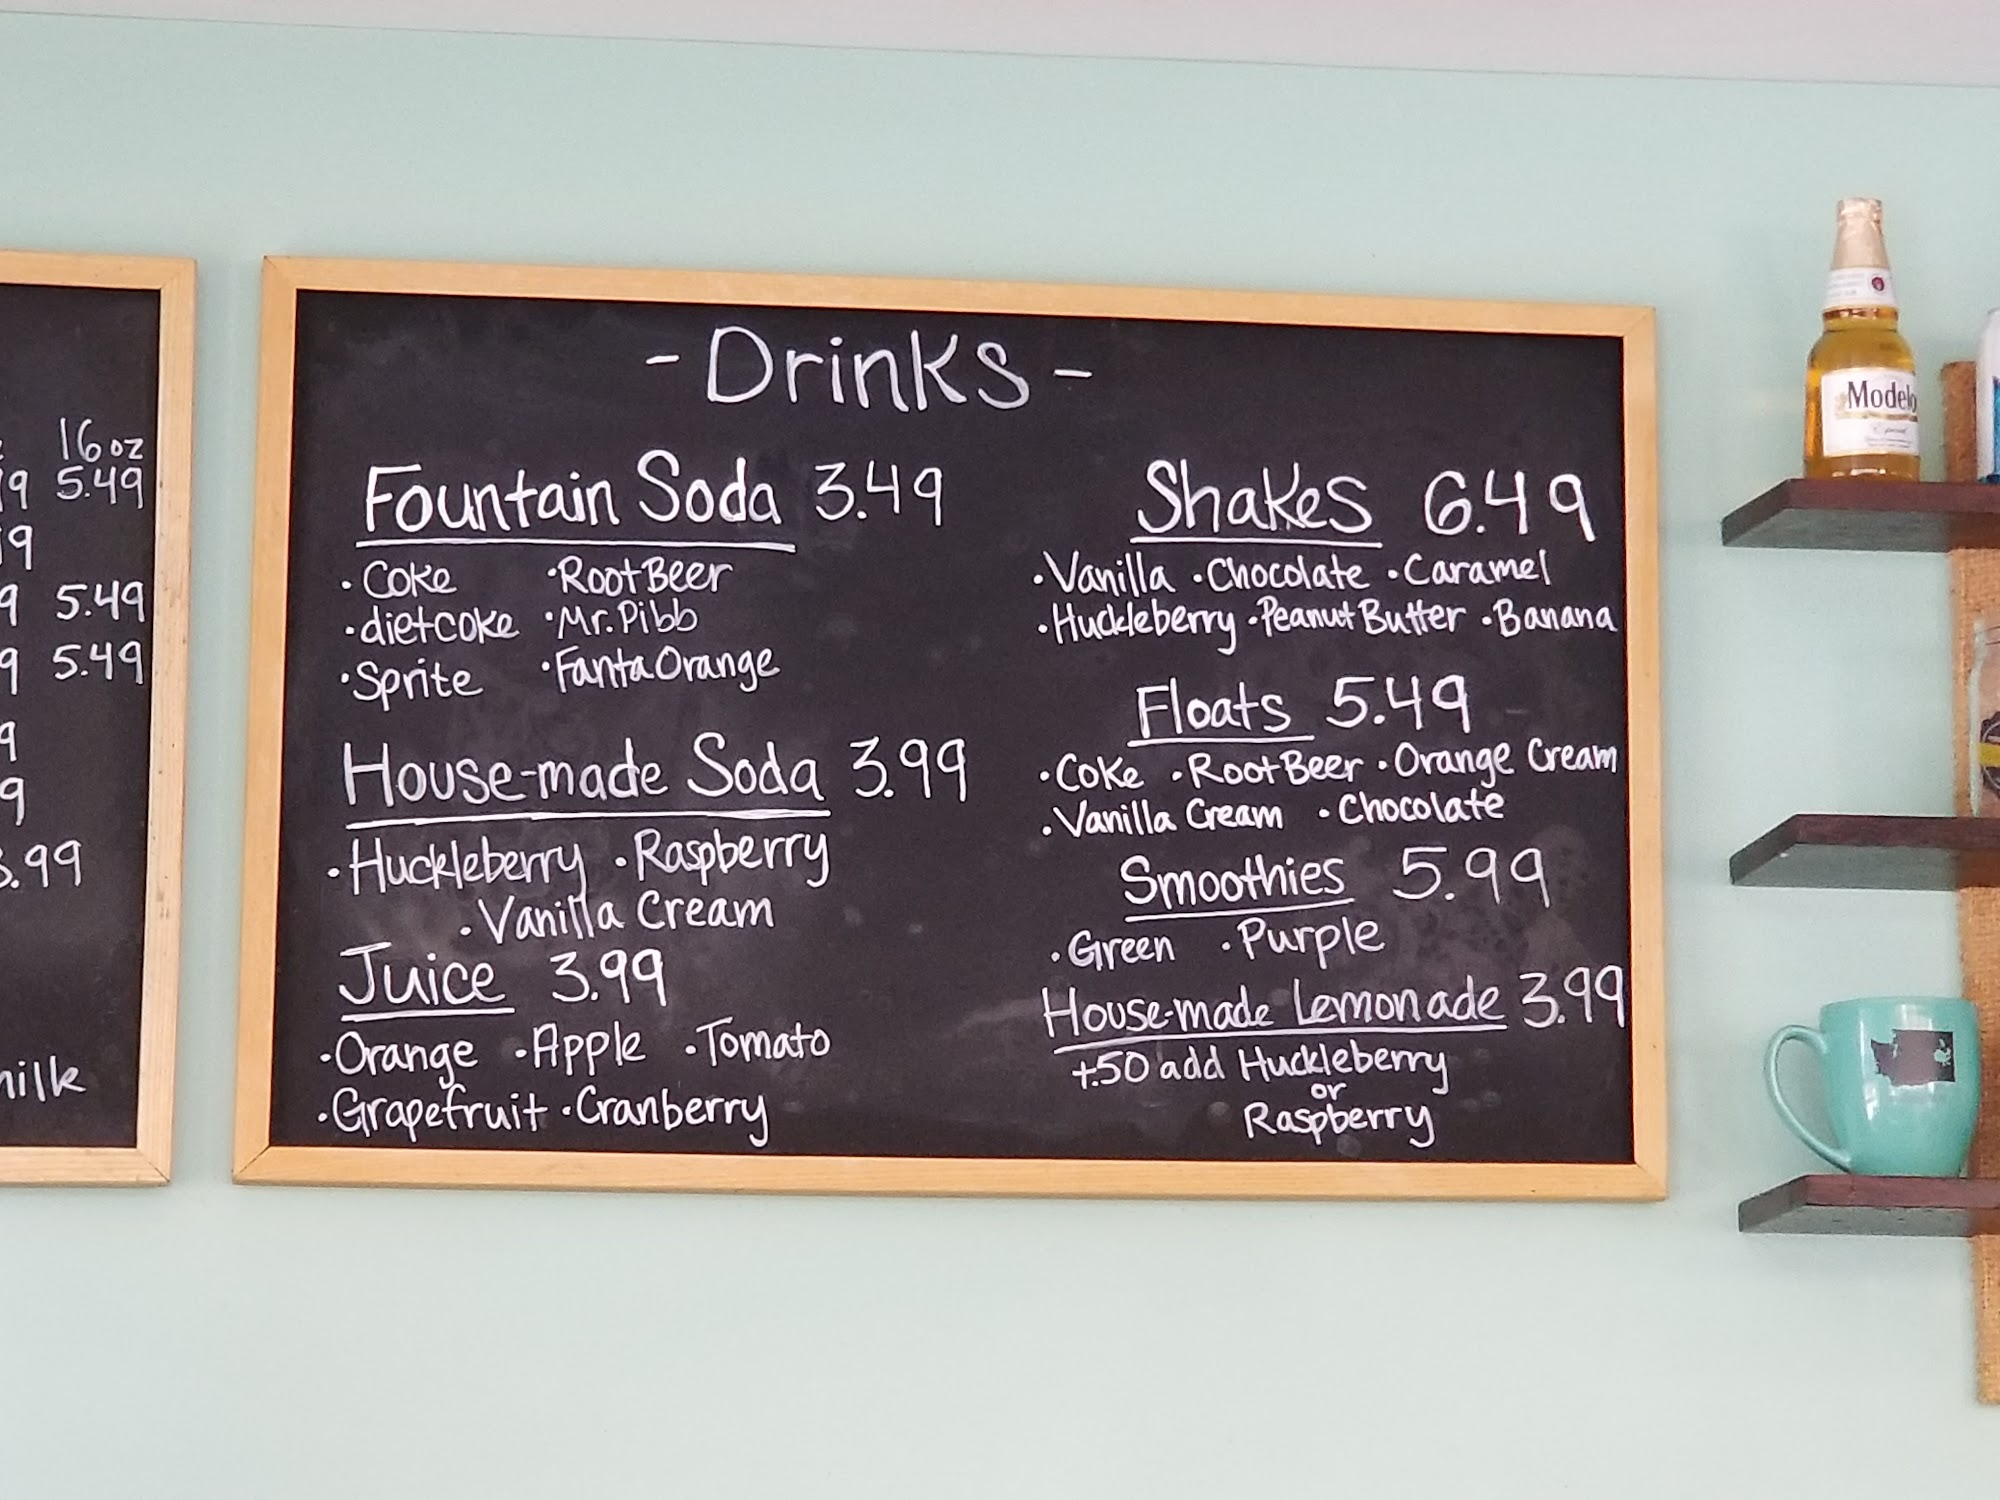 16oz
5.49
5.49
5.49
3.99
milk
- Drinks -
Fountain Soda 3.49
·Coke ·Root Beer
·diet coke ·Mr. Pibb
·Sprite ·Fanta Orange
House-made Soda 3.99
·Huckleberry ·Raspberry
·Vanilla Cream
Juice 3.99
·Orange ·Apple ·Tomato
·Grapefruit ·Cranberry
Shakes 6.49
·Vanilla ·Chocolate ·Caramel
·Huckleberry ·Peanut Butter ·Banana
Floats 5.49
·Coke ·Root Beer ·Orange Cream
·Vanilla Cream ·Chocolate
Smoothies 5.99
·Green ·Purple
House-made Lemonade 3.99
+.50 add Huckleberry
or
Raspberry
Modelo